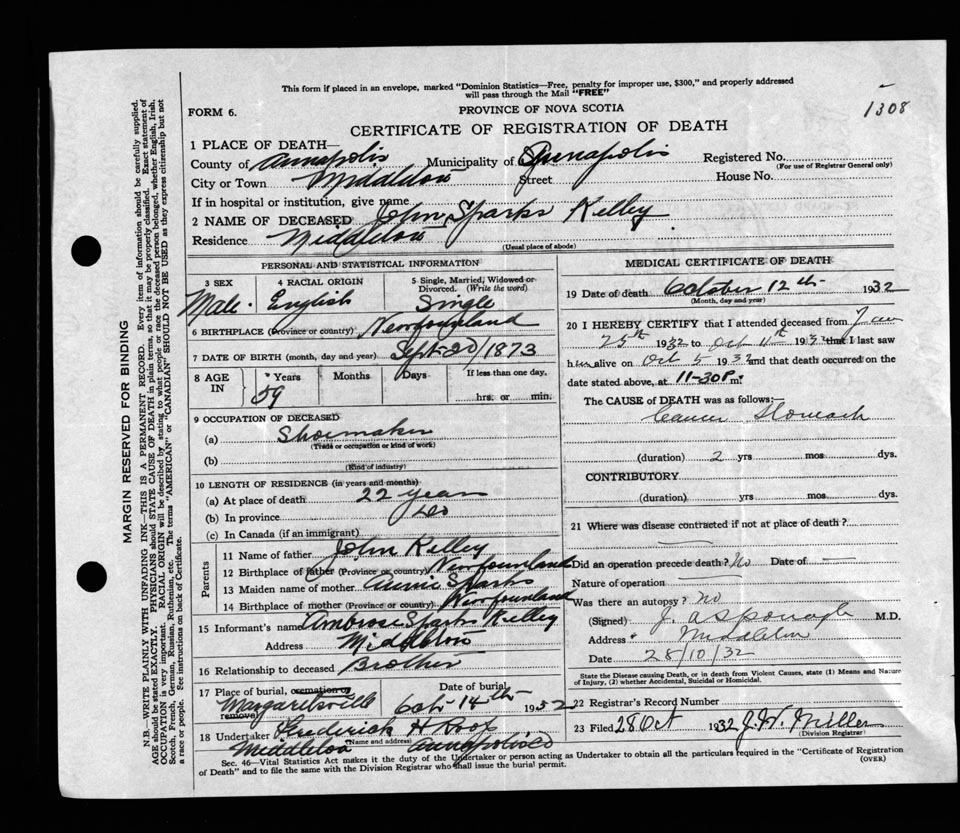 This form if placed in an envelope, marked "Dominion Statistics—Free, penalty for improper use, $300," and properly addressed
will pass through the Mail "FREE"
1308
FORM 6.
PROVINCE OF NOVA SCOTIA
CERTIFICATE OF REGISTRATION OF DEATH
1 PLACE OF DEATH—
County of Annapolis Municipality of Annapolis Registered No.
(For use of Registrar General only)
City or Town Middleton Street House No.
If in hospital or institution, give name
2 NAME OF DECEASED John Sparks Kelley
Residence Middleton
(Usual place of abode)
PERSONAL AND STATISTICAL INFORMATION
3 SEX 4 RACIAL ORIGIN 5 Single, Married, Widowed or
Divorced. (Write the word)
Male English Single
6 BIRTHPLACE (Province or country) Newfounland
7 DATE OF BIRTH (month, day and year) Sept-20/1873
8 AGE IN Years Months Days If less than one day,
59 hrs. or min.
9 OCCUPATION OF DECEASED
(a) Shoemaker
(Trade or occupation or kind of work)
(b)
(Kind of industry)
10 LENGTH OF RESIDENCE (in years and months)
(a) At place of death 22 years
(b) In province Do
(c) In Canada (if an immigrant)
Parents
11 Name of father John Kelley
12 Birthplace of father (Province or country) Newfounland
13 Maiden name of mother Annie Sparks
14 Birthplace of mother (Province or country) Newfounland
15 Informant's name Ambrose Sparks Kelley
Address Middleton
16 Relationship to deceased Brother
17 Place of burial, cremation or Date of burial
Margaretsville Oct-14th- 1932
removal
18 Undertaker Frederick H
Middleton Annapolis Co
Name and address
MEDICAL CERTIFICATE OF DEATH
19 Date of death October 12th 1932
(Month, day and year)
20 I HEREBY CERTIFY that I attended deceased from Jan
25th 1932 to Oct 11th 1932 that I last saw
him alive on Oct 5 1932 and that death occurred on
date stated above, at 11-30P. m.
The CAUSE of DEATH was as follows:—
Cancer Stomach
(duration) 2 yrs mos dys.
CONTRIBUTORY
(duration) yrs mos dys.
21 Where was disease contracted if not at place of death?
Did an operation precede death? No Date of
Nature of operation
Was there an autopsy? no
(Signed) J. A Sponagle M.D.
Address Middleton
Date 28/10/32
State the Disease causing Death, or in death from Violent Causes, state (1) Means and Nature
of Injury, (2) whether Accidental, Suicidal or Homicidal.
22 Registrar's Record Number
23 Filed 28 Oct 1932 J. W. Miller
(Division Registrar)
Sec. 46—Vital Statistics Act makes it the duty of the Undertaker or person acting as Undertaker to obtain all the particulars required in the "Certificate of Registration
of Death" and to file the same with the Division Registrar who shall issue the burial permit.
(OVER)
MARGIN RESERVED FOR BINDING
N.B.—WRITE PLAINLY WITH UNFADING INK—THIS IS A PERMANENT RECORD. Every item of information should be carefully supplied.
AGE should be stated EXACTLY. PHYSICIANS should STATE CAUSE OF DEATH in plain terms, so that it may be properly classified. Exact statement of
OCCUPATION is very important. RACIAL ORIGIN will be described by stating to what people or race the deceased person belonged, whether English, Irish,
Scotch, French, German, Russian, Ruthenian, etc. The terms "AMERICAN" or "CANADIAN" SHOULD NOT BE USED as they express citizenship but not
a race or people. See instructions on back of Certificate.